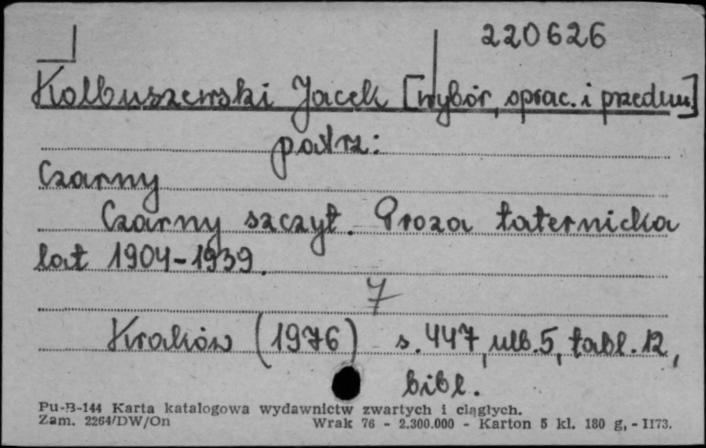 220626
Kolbuszewski Jacek [wybór, oprac. i przedm.]
patrz:
Czarny
Czarny szczyt. Proza taternicka
lat 1904-1939.
7
Kraków (1976) s. 447, ulb. 5, tabl. 12,
bibl.
Pu-B-144 Karta katalogowa wydawnictw zwartych i ciągłych.
Zam. 2264/DW/On Wrak 76 - 2.300.000 - Karton 5 kl. 180 g, - II73.